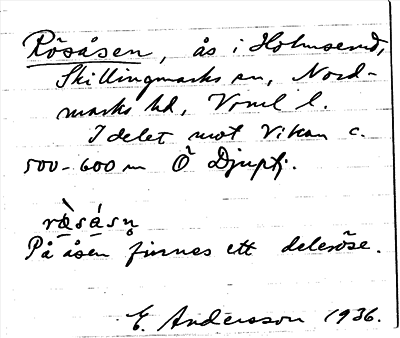 Rösåsen, ås i Holmserud,
Skillingmarks sn, Nord-
marks hd, Vrml l.
I delet mot Vikan c.
500-600 m Ö Djuptj.
ræ̀såsn̥
På åsen finnes ett deleröse.
E. Andersson 1936.